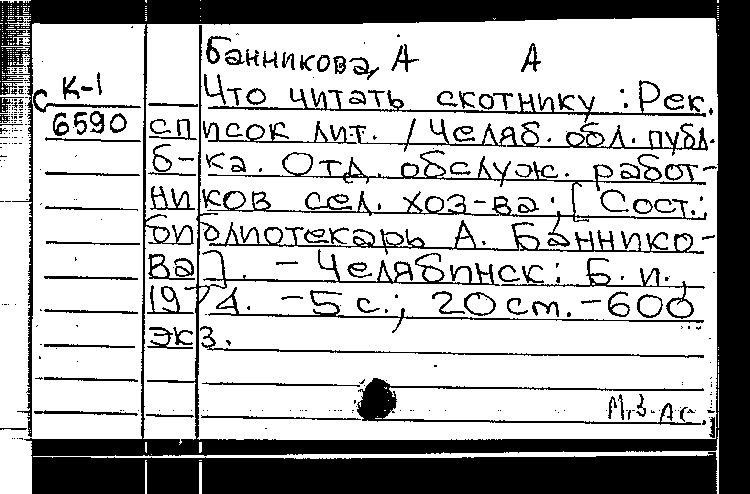 Банникова, А А
К-1
С Что читать скотнику : Рек.
6590 список лит. / Челяб. обл. публ.
б-ка. Отд. обслуж. работ-
ников сел. хоз-ва; [Сост.:
библиотекарь А. Баннико-
ва]. - Челябинск: Б. и.,
1974. - 5 с.; 20 ст. - 600
экз.